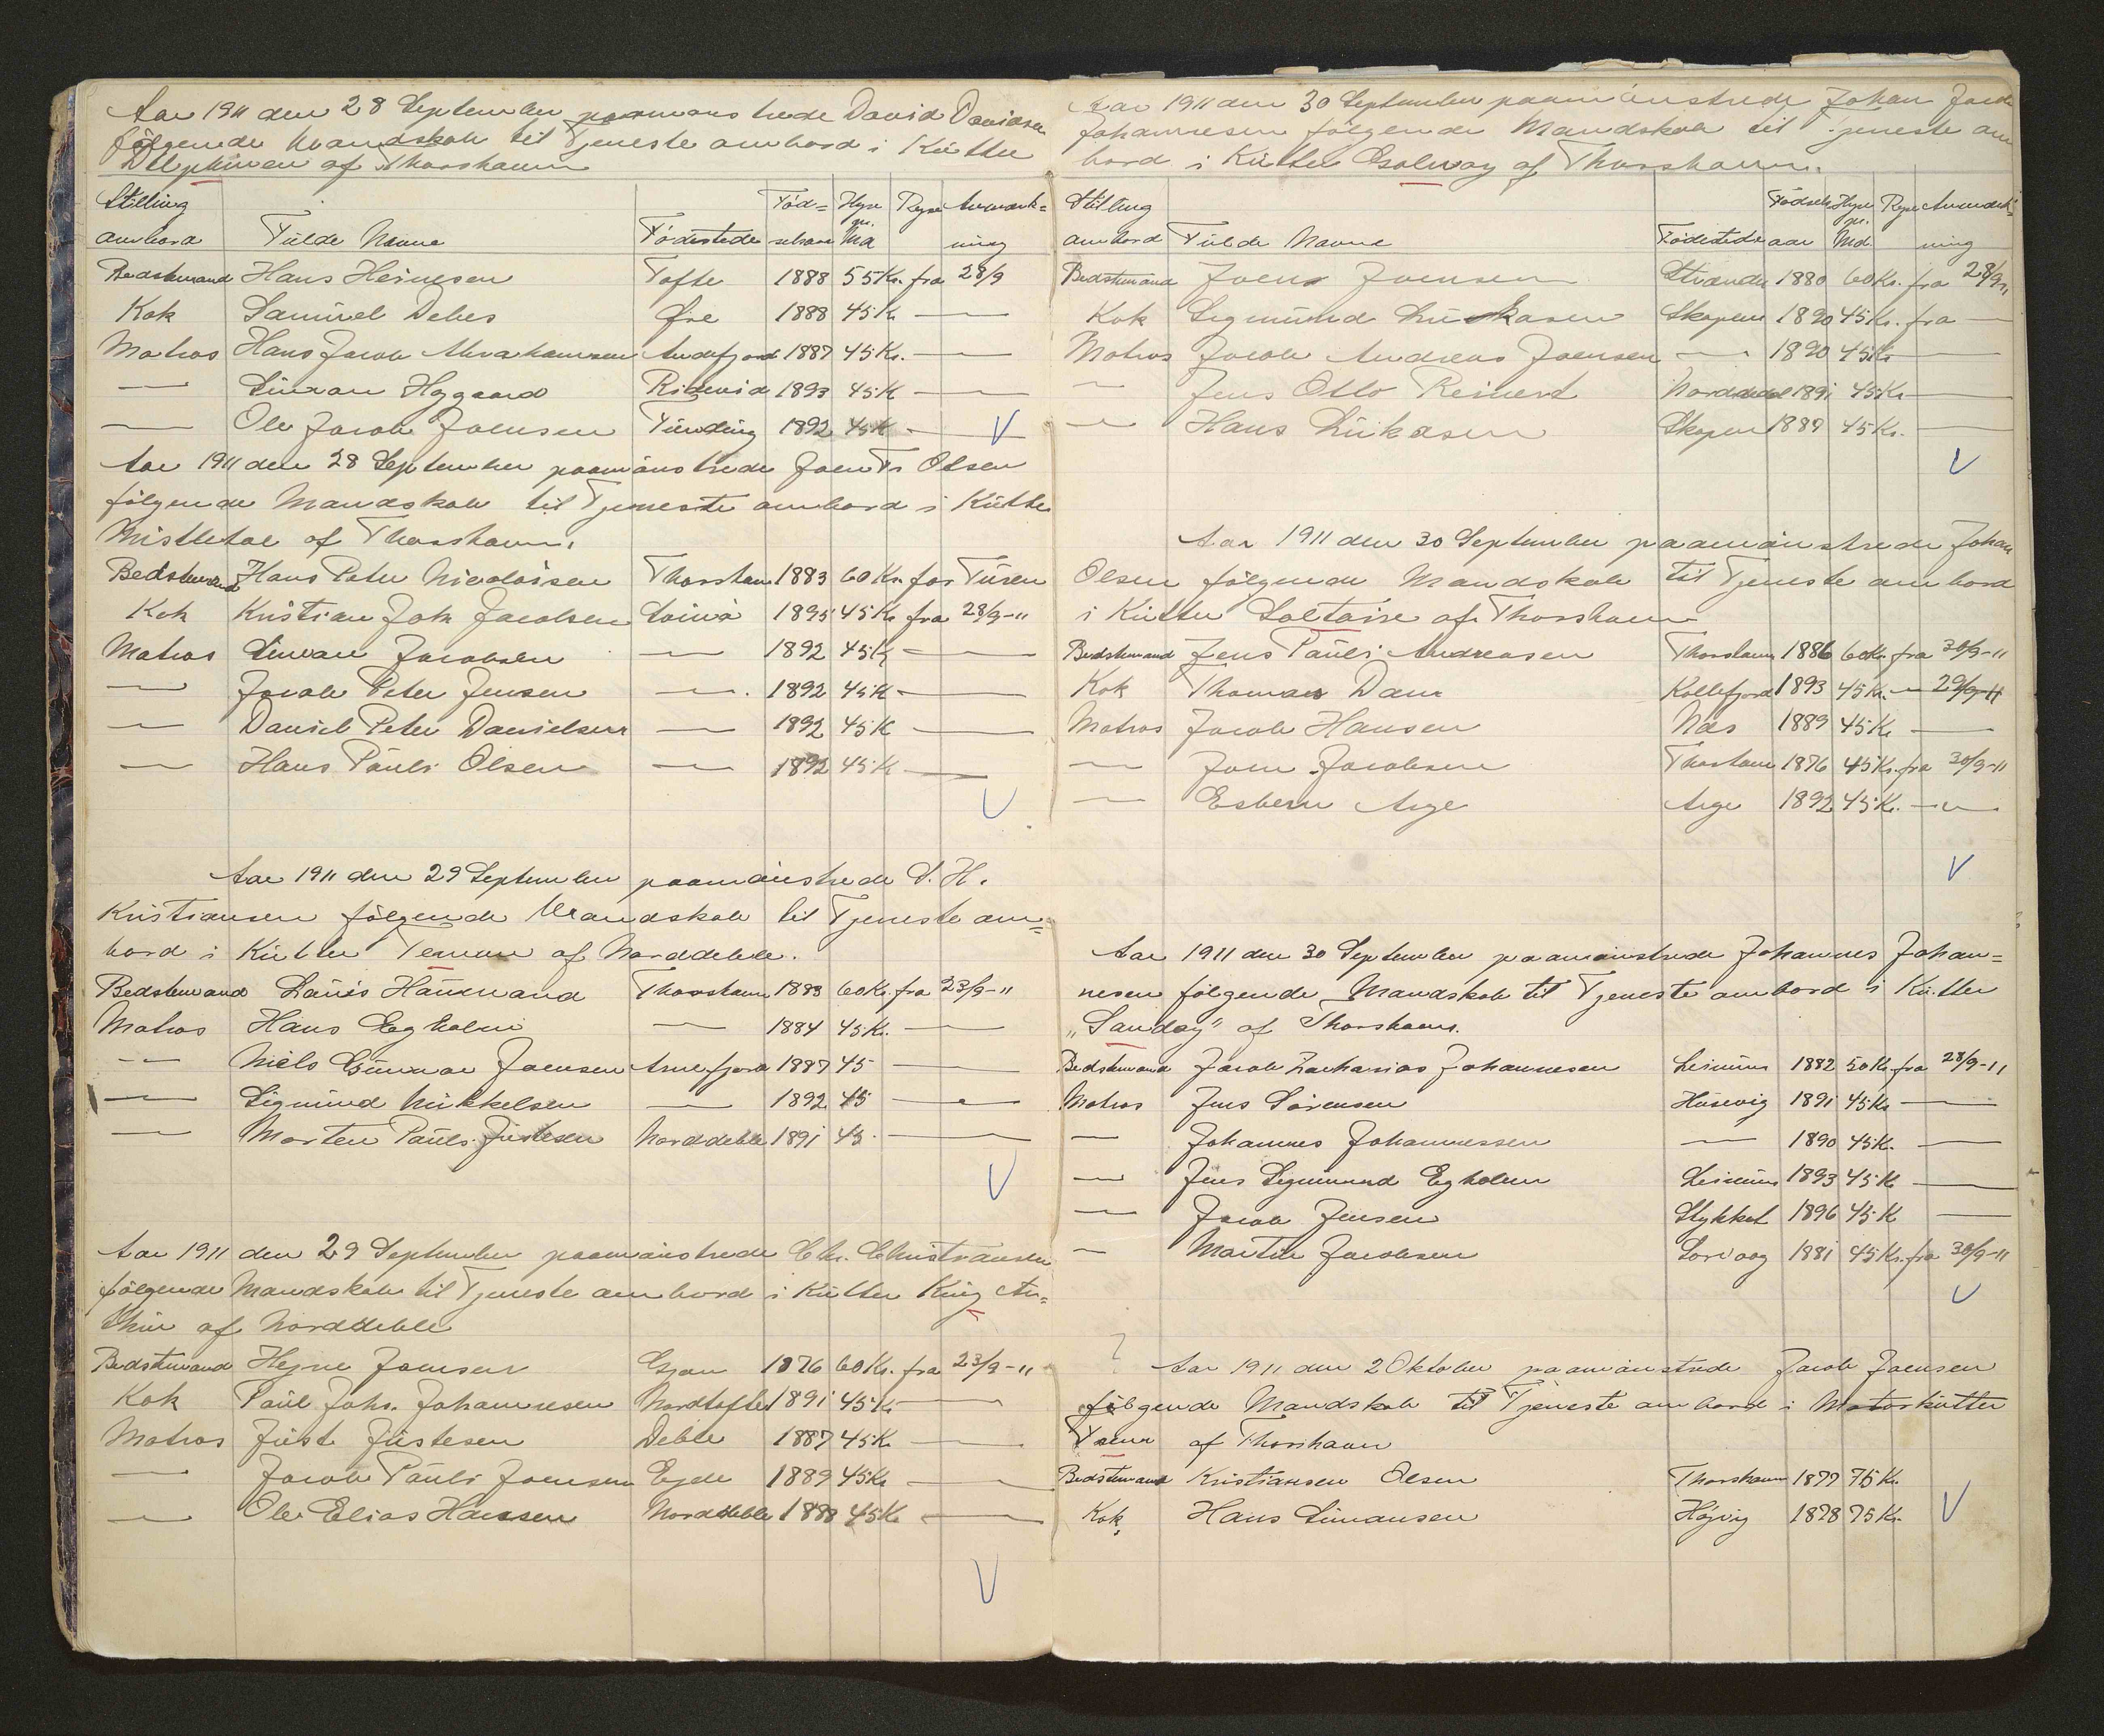 Aar 1911 den 28 September paamønstrede David Davidsen
følgende Mandskab til Tjeneste ombord i Kutter
Delphinen af Thorshavn
Stilling Fød= Hyre Rejse Anmærk=
ombord Fulde Navne Fødested selsaar Md ning
Bedstemand Hans Heinesen Tofte 1888 55 Kr. fra 28/9
Kok Samüel Debes Øre 1888 45 K —
Matros Hans Jacob Abrahamsen Andefjord 1887 45 Kr. —
— Simon Hygaard 1893 45 K —
— Ole Jacob Joensen Fünding 1892 45 K —
Aar 1911 den 28 September paamønstrede Joen Fr Olsen
følgende Mandskab til Tjeneste ombord i Kütter
Mistletoe af Thorshavn.
Bedstemand Hans Peter Nicolaisen Thorshavn 1883 60 Kr. for Türen
Kok Kristian Joh Jacobsen 1895 45 Kr fra 28/9-11
Matros Simon Jacobsen — 1892 45 K —
— Jacob Peter Jensen — 1892 45 K —
— Daniel Peter Danielsen — 1892 45 K —
— Hans Paüli Olsen — 1892 45 K —
Aar 1911 den 29 September paamønstrede S. H.
Kristiansen følgende Mandskab til Tjeneste om=
bord i Kütter Ternen af Norddeble.
Bedstemand Thorshavn 1883 60 Kr. fra 23/9-11
Matros Hans Egholm — 1884 45 K. —
— Niels Günnar Joensen Arnefjord 1887 45 —
— Sigmünd Mikkelsen — 1892 45 —
— Morten Paüli Jüstesen Norddeble 1891 45 —
Aar 1911 den 29 September paamønstrede Chr. Christiansen
følgende Mandskab til Tjeneste ombord i Kütter King Ar=
thür af Norddeble
Bedstemand Hejne Joensen Gjov 1876 60 Kr. fra 23/9-11
Kok Paül Johs. Johannesen Nordtofte 1891 45 K —
Matros Jüst Jüstesen Deble 1887 45 K. —
— Jacob Paüli Joensen Ejde 1889 45 Kr —
— Ole Elias Hansen Norddeble 1888 45 K. —
Aar 1911 den 30 September paamønstrede Johan Jacob
Johannesen følgende Mandskab til Tjeneste om
bord i Kütter Galway af Thorshavn.
Stilling Fødsels Hyre Rejse Anmærk
ombord Fülde Navne Fødested aar Md. ning
Bedstemand Joen Joensen Strande 1880 60 Kr. fra 28/9 11
Kok Sigmünd Lükasen Skopen 1890 45 Kr. fra —
Matros Jacob Andreas Joensen — 1890 45 K —
— Jens Otto Reinert Norddebel 1891 45 Kr —
— Hans Lükasen Skopen 1889 45 Kr. —
Aar 1911 den 30 September paamønstrede Johan
Olsen følgende Mandskab til Tjeneste ombord
i Kütter Soltaire af Thorshavn
Bedstemand Jens Paüli Andreasen Thorshavn 1886 60 Kr. fra 30/9-11
Kok Thomas Dam Kollefjord 1893 45 Kr. — 29/9-11
Matros Jacob Hansen Næs 1889 45 K. —
— Joen Jacobsen Thorshavn 1876 45 Kr. fra 30/9-11
— Esbern Arge Arge 1892 45 K. —
Aar 1911 den 30 September paamønstrede Johannes Johan=
nesen følgende Mandskab til Tjeneste ombord i Kütter
„Sanday" af Thorshavn.
Bedstemand Jacob Zacharias Johannesen Leinüm 1882 50 Kr. fra 28/9-11
Matros Jens Sørensen Hüsevig 1891 45 Kr —
— Johannes Johannessen — 1890 45 K. —
— Jens Sigmund Egholm Leinüm 1893 45 K —
— Jacob Jensen Stykket 1896 45 K —
— Martin Jacobsen Sorvaag 1881 45 Kr. fra 30/9-11
?
Aar 1911 den 2 Oktober paamønstrede Jacob Joensen
følgende Mandskab til Tjeneste ombord i Motorkütter
af Thorshavn
Bedstemand Kristiansen Olsen Thorshavn 1877 75 Kr.
Kok, Hans Simonsen Højvig 1878 75 Kr.